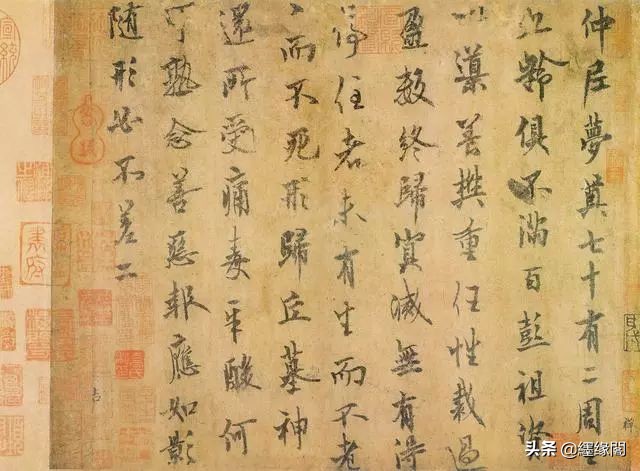 仲尼夢奠七十有二周
九齡俱不滿百彭祖資
以導養樊重任性裁過
盈數終歸冥滅無有得
停住者未有生而不老
老而不死形歸丘墓神
還所受痛毒辛酸何
可熟念善惡報應如影
随形必不差二
头条 @纆缘閣